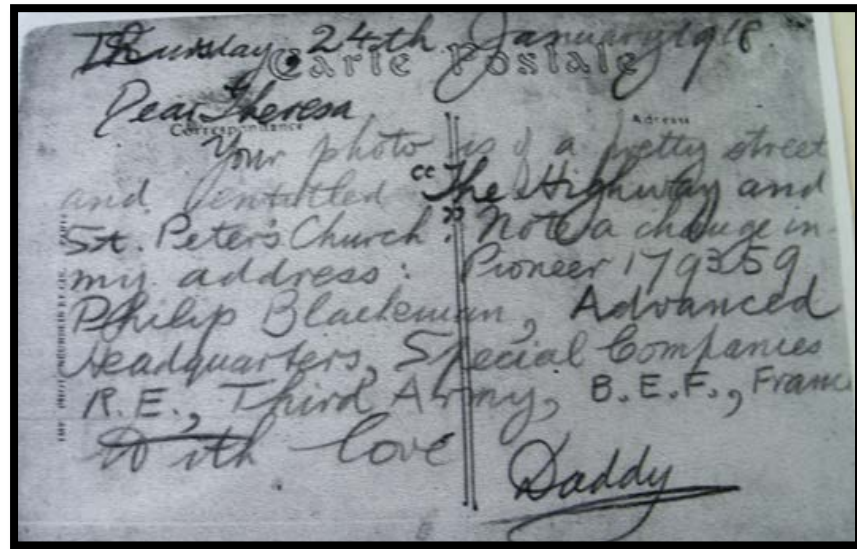 Thursday, 24th January 1918.
Carte Postale
Dear Theresa
Correspondance
Adresse
Your photo is of a pretty street
and entitled "The Highway and
St. Peter's Church". Note a change in
my address: Pioneer 179359
Philip Blackeman, Advanced
Headquarters, Special Companies
R.E., Third Army, B.E.F., France
With love
Daddy